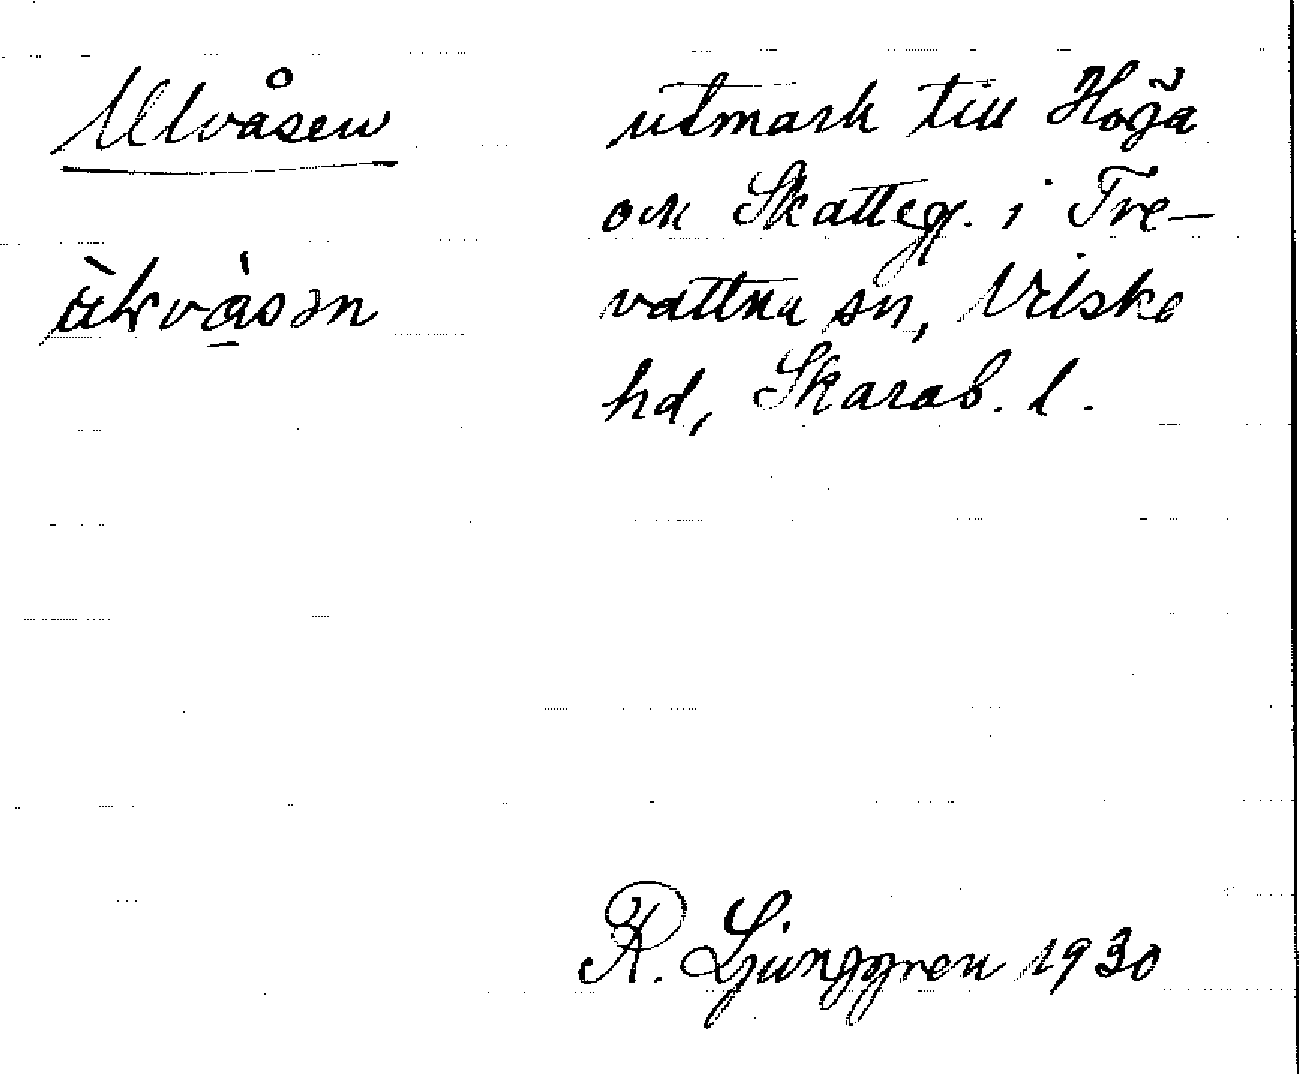 Ulvåsen
ùlvàsən
utmark till Höja
och Skatteg. i Tre-
vattna sn, Vilske
hd, Skarab. l.
R. Ljunggren 1930